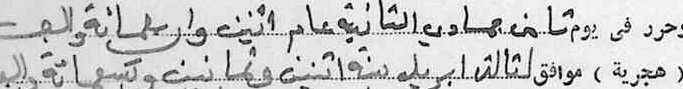 وحرر فى يوم ثامن جمادى الثانية عام اثنين واربعمائة والف
( هجرية ) موافق لثالث ابريل سنة اثنين وثمانين وتسعمائة والف